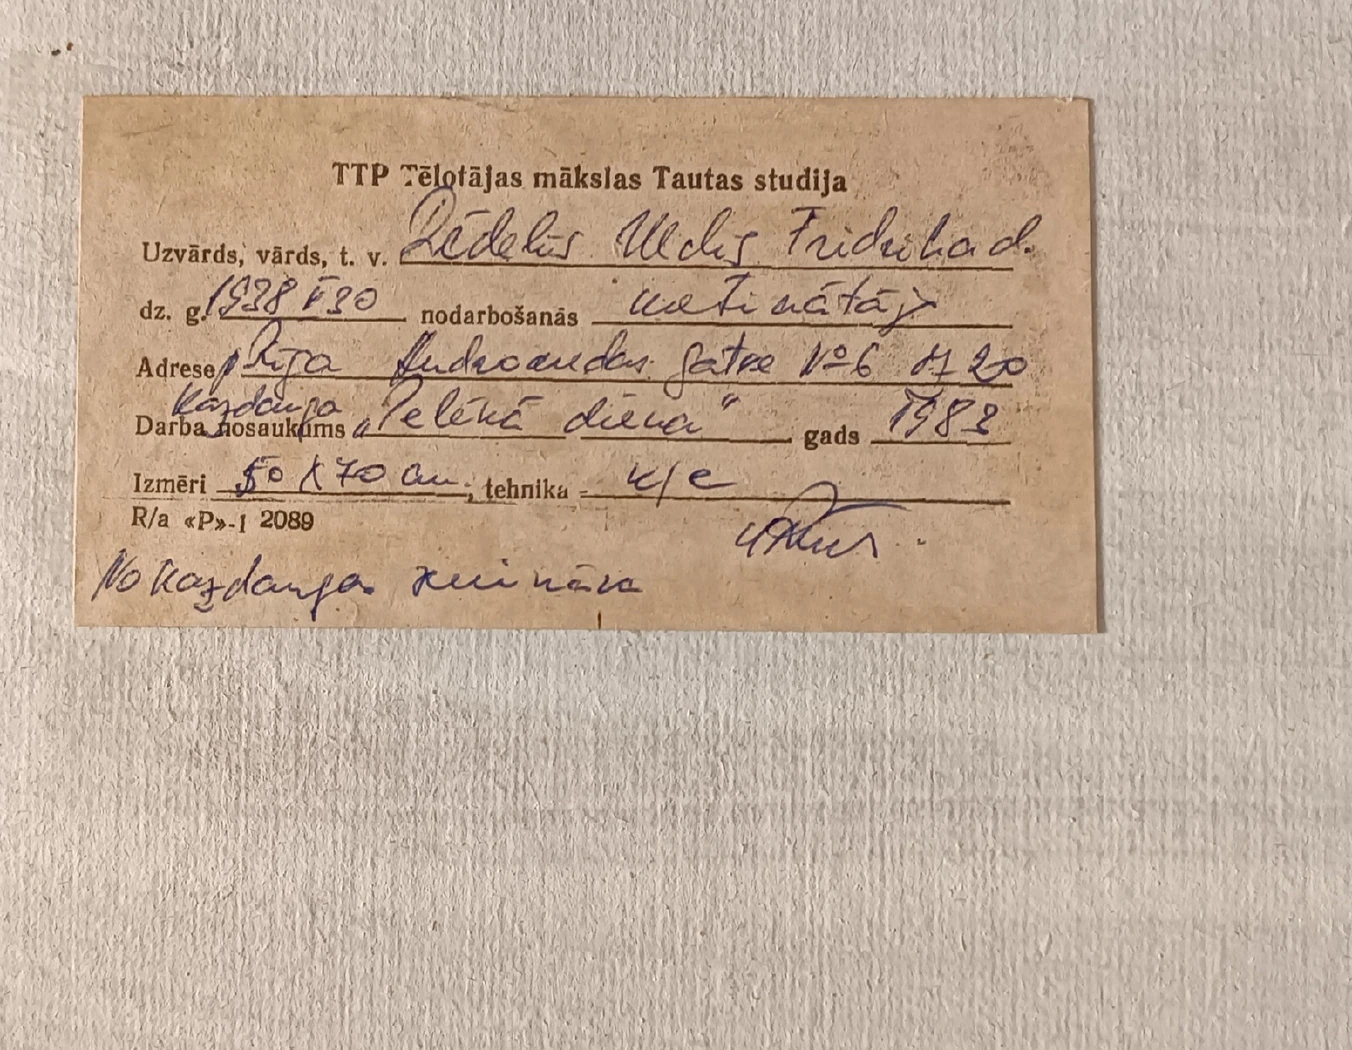 TTP Tēlotājas mākslas Tautas studija
Uzvārds, vārds, t. v. Rēdelis Uldis Fridriha d.
dz. g. 1938 V 30 nodarbošanās metinātājs
Adrese Rīga Andromedas gatve № 6 dz 20
Kazdanga
Darba nosaukums „Pelēkā diena“ gads 1983
Izmēri 50 X 70 cm; tehnika k/e
R/a «P»-1 2089
No Kazdangas semināra